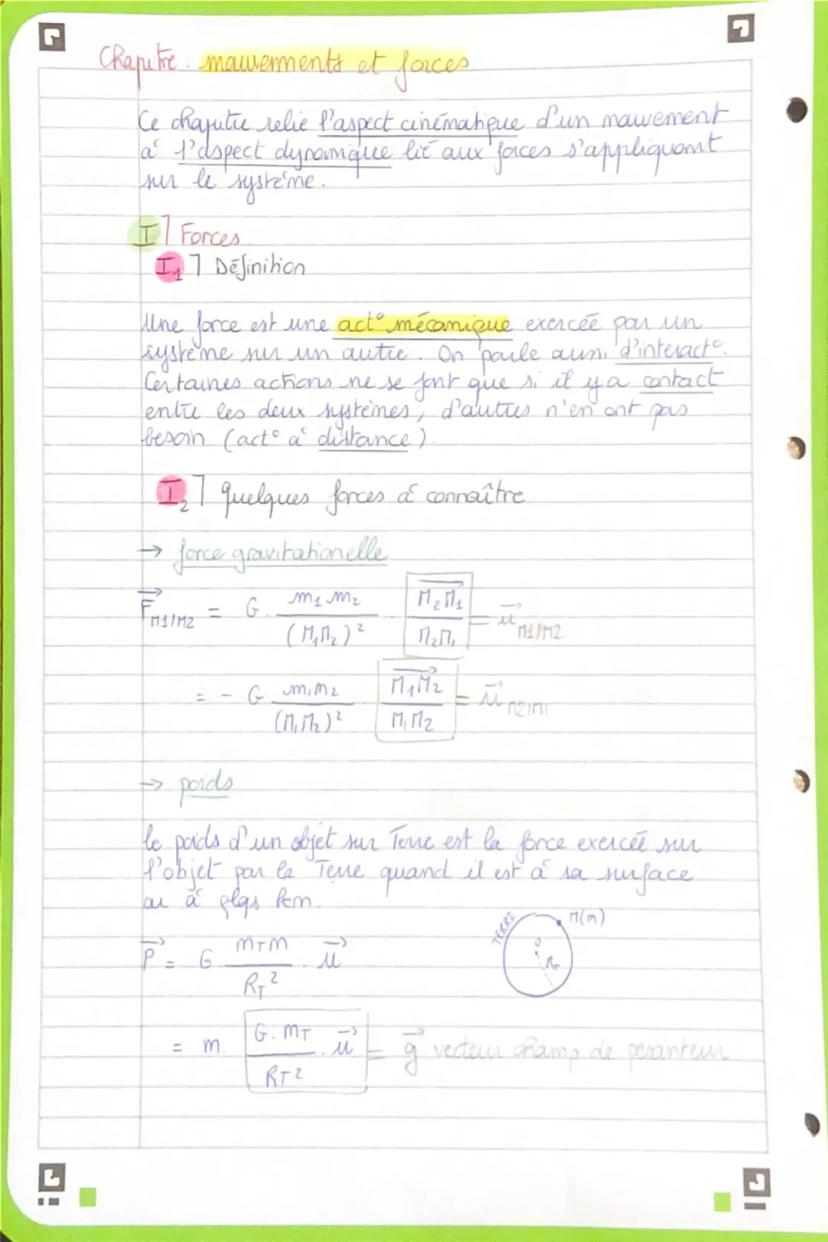 Chapitre : mouvements et forces
Ce chapitre relie l'aspect cinématique d'un mouvement
à l'aspect dynamique lié aux forces s'appliquant
sur le système.
I] Forces
I₁] Définition
Une force est une act° mécanique exercée par un
système sur un autre. On parle aussi d'interact°.
Certaines actions ne se font que si il y a contact
entre les deux systèmes, d'autres n'en ont pas
besoin (act° à distance)
I₂] Quelques forces à connaître
→ force gravitationelle
F⃗ M1/M2 = G · m₁ m₂ / (M₁M₂)² · M₂M₁⃗ / M₂M₁ = u⃗ M1/M2
= - G m₁m₂ / (M₁M₂)² · M₁M₂⃗ / M₁M₂ = u⃗ M2/M1
→ poids
le poids d'un objet sur Terre est la force exercée sur
l'objet par la Terre quand il est à sa surface
ou à qlqs km.
TERRE M(m)
O
R_T
P⃗ = G · m_T m / R_T² · u⃗
= m · G. m_T / R_T² · u⃗ = g⃗ vecteur champ de pesanteur